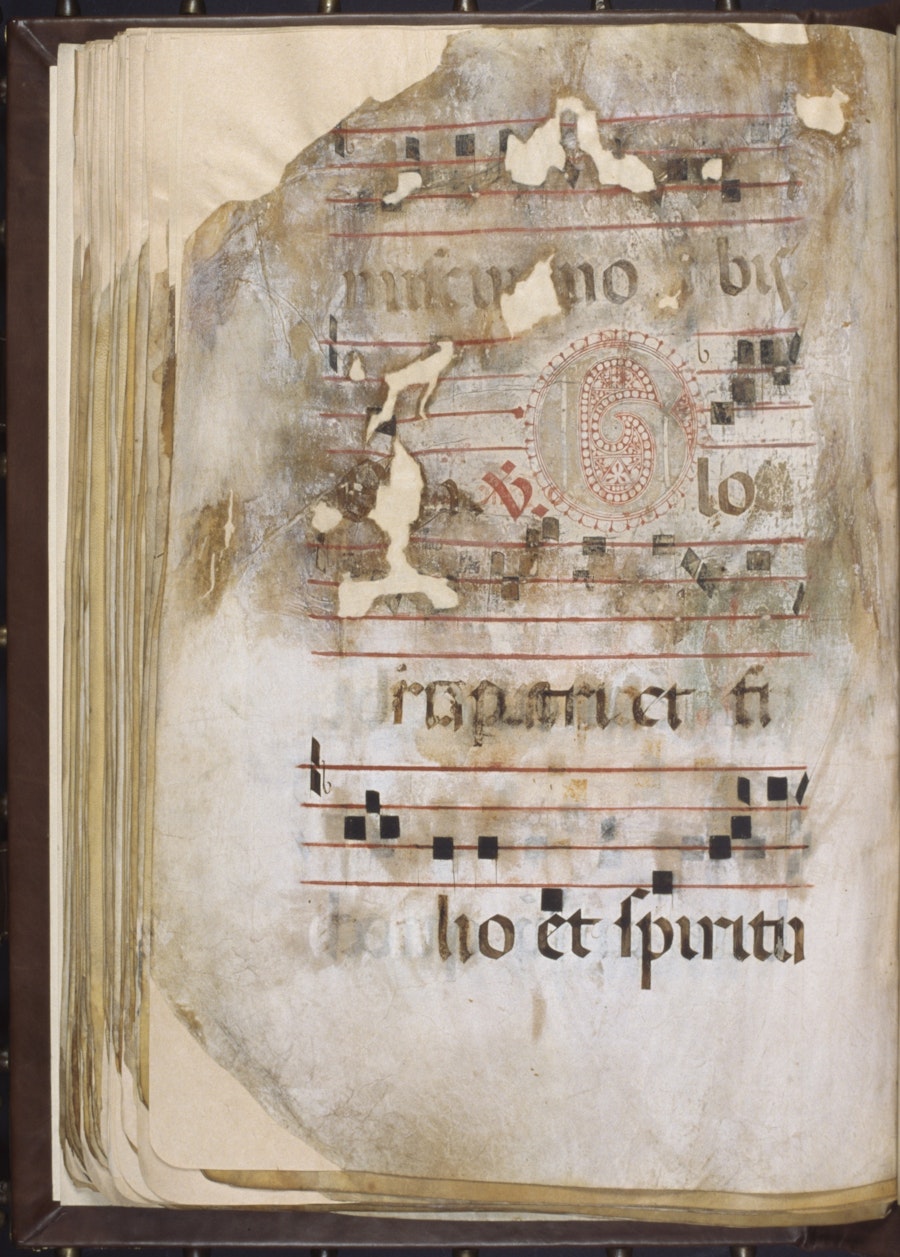 no bis
℣. Glo
ria patri et fi
lio et spiritu